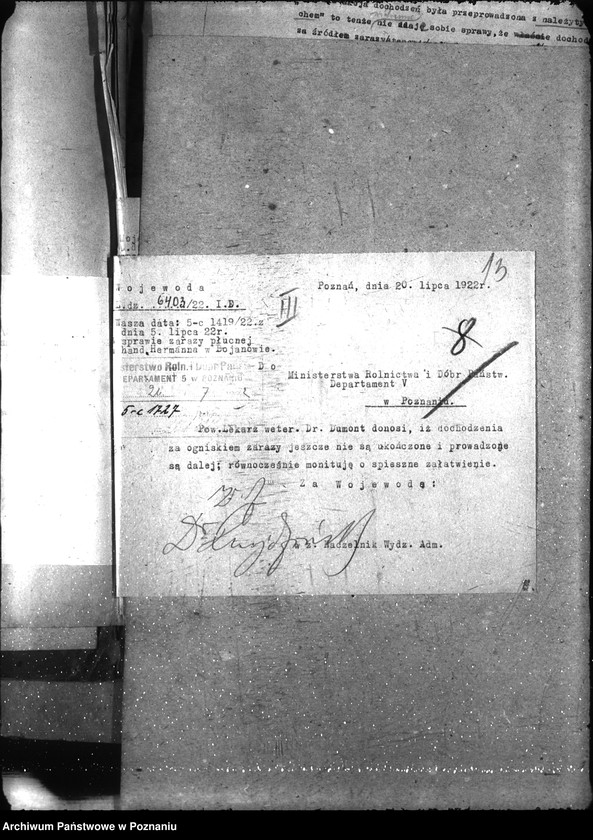 dochodzeń była przeprowadzona z należyty
chem" to tenże nie zdaje sobie sprawy, że właśnie dochod
za źródłem zarazy
13
Wojewoda
Poznań, dnia 20. lipca 1922r.
L.dz. 6403/22. I.D.
III
Wasza data: 5-c 1419/22.z
dnia 5. lipca 22r.
sprawie zarazy płucnej
hand. Hermanna w Bojanowie.
8
sterstwo Roln. i Dóbr Państ
Do
DEPARTAMENT 5 w POZNANIU
Ministerstwa Rolnictwa i Dóbr Państw.
Departament V
5-c 1727
w Poznaniu.
Pow.Lekarz weter. Dr. Dumont donosi, iż dochodzenia
za ogniskiem zarazy jeszcze nie są ukończone i prowadzone
są dalej; równocześnie monituję o spieszne załatwienie.
Za Wojewodę:
Dr
z. Naczelnik Wydz. Adm.
Archiwum Państwowe w Poznaniu